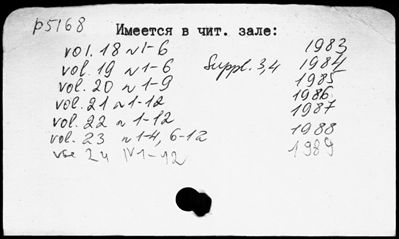 p5168
Имеется в чит. зале:
vol. 18 N 1-6 1983
vol. 19 N 1-6 Suppl. 3,4 1984
vol. 20 N 1-9 1985
vol. 21 N 1-12 1986
vol. 22 N 1-12 1987
vol. 23 N 1-4, 6-12 1988
24 N 1-12 1989